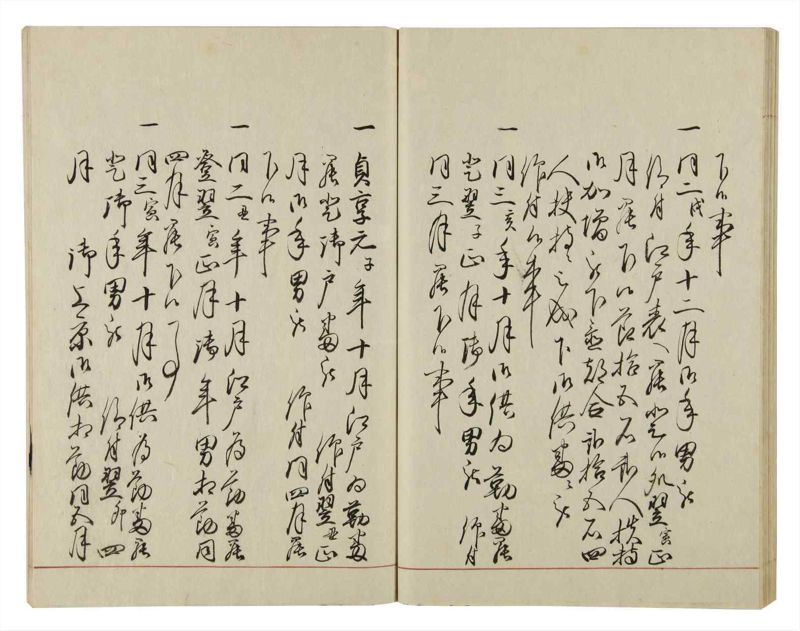 下候事
一 同二戌年十二月御年男被
仰付江戸表へ罷登候処翌亥正
月罷下候節拾五石弐人扶持
御加増被下置都合弐拾五石四
人扶持被成下御供番被
仰付候事
一 同三亥年十月御供為勤番罷
登翌子正月御年男被 仰付
同三月罷下候事
一 貞享元子年十月江戸為勤番
罷登御戸番被 仰付翌丑正
月御年男被 仰付同四月罷
下候事
一 同二丑年十月江戸為勤番罷
登翌寅正月御年男相勤同
四月罷下候事
一 同三寅年十月御供為勤番罷
登御年男被 仰付翌卯四
月 御 御供相勤同五月